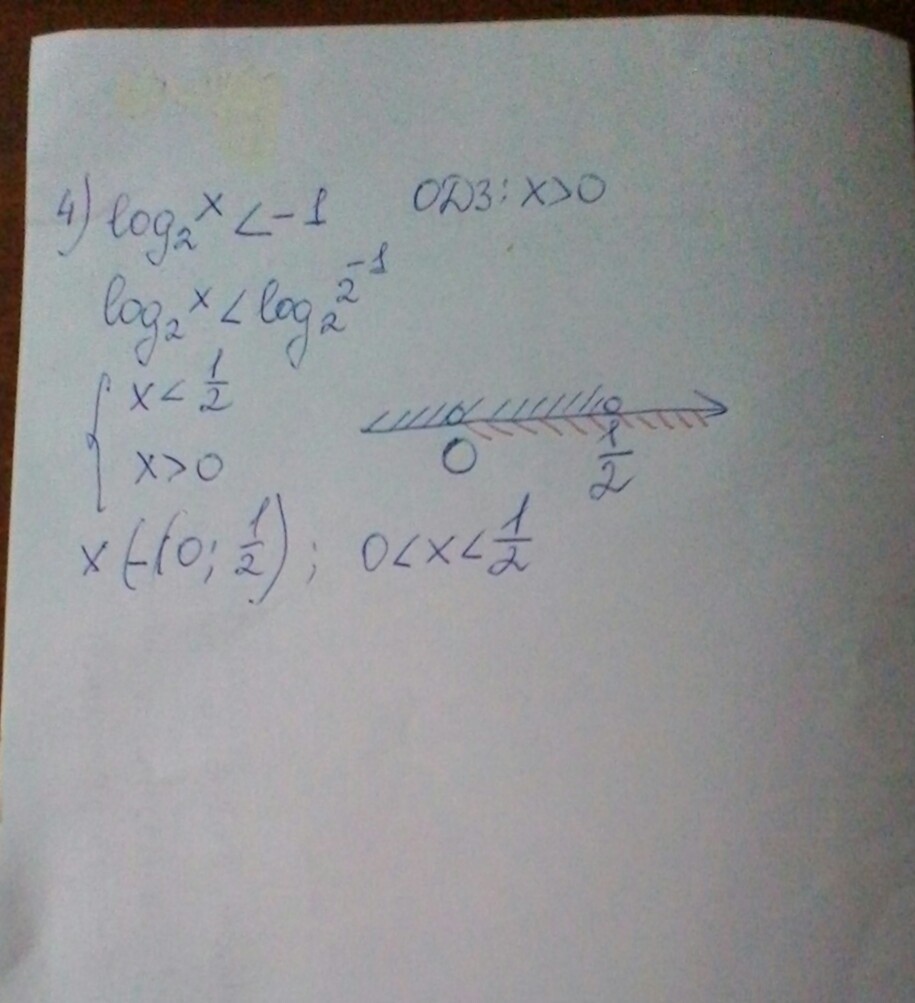 4) log₂ˣ < -1 ОДЗ: x>0
log₂ˣ < log₂^2⁻¹
{ x < 1/2
x > 0
0 1/2
x ∈ (0; 1/2); 0 < x < 1/2